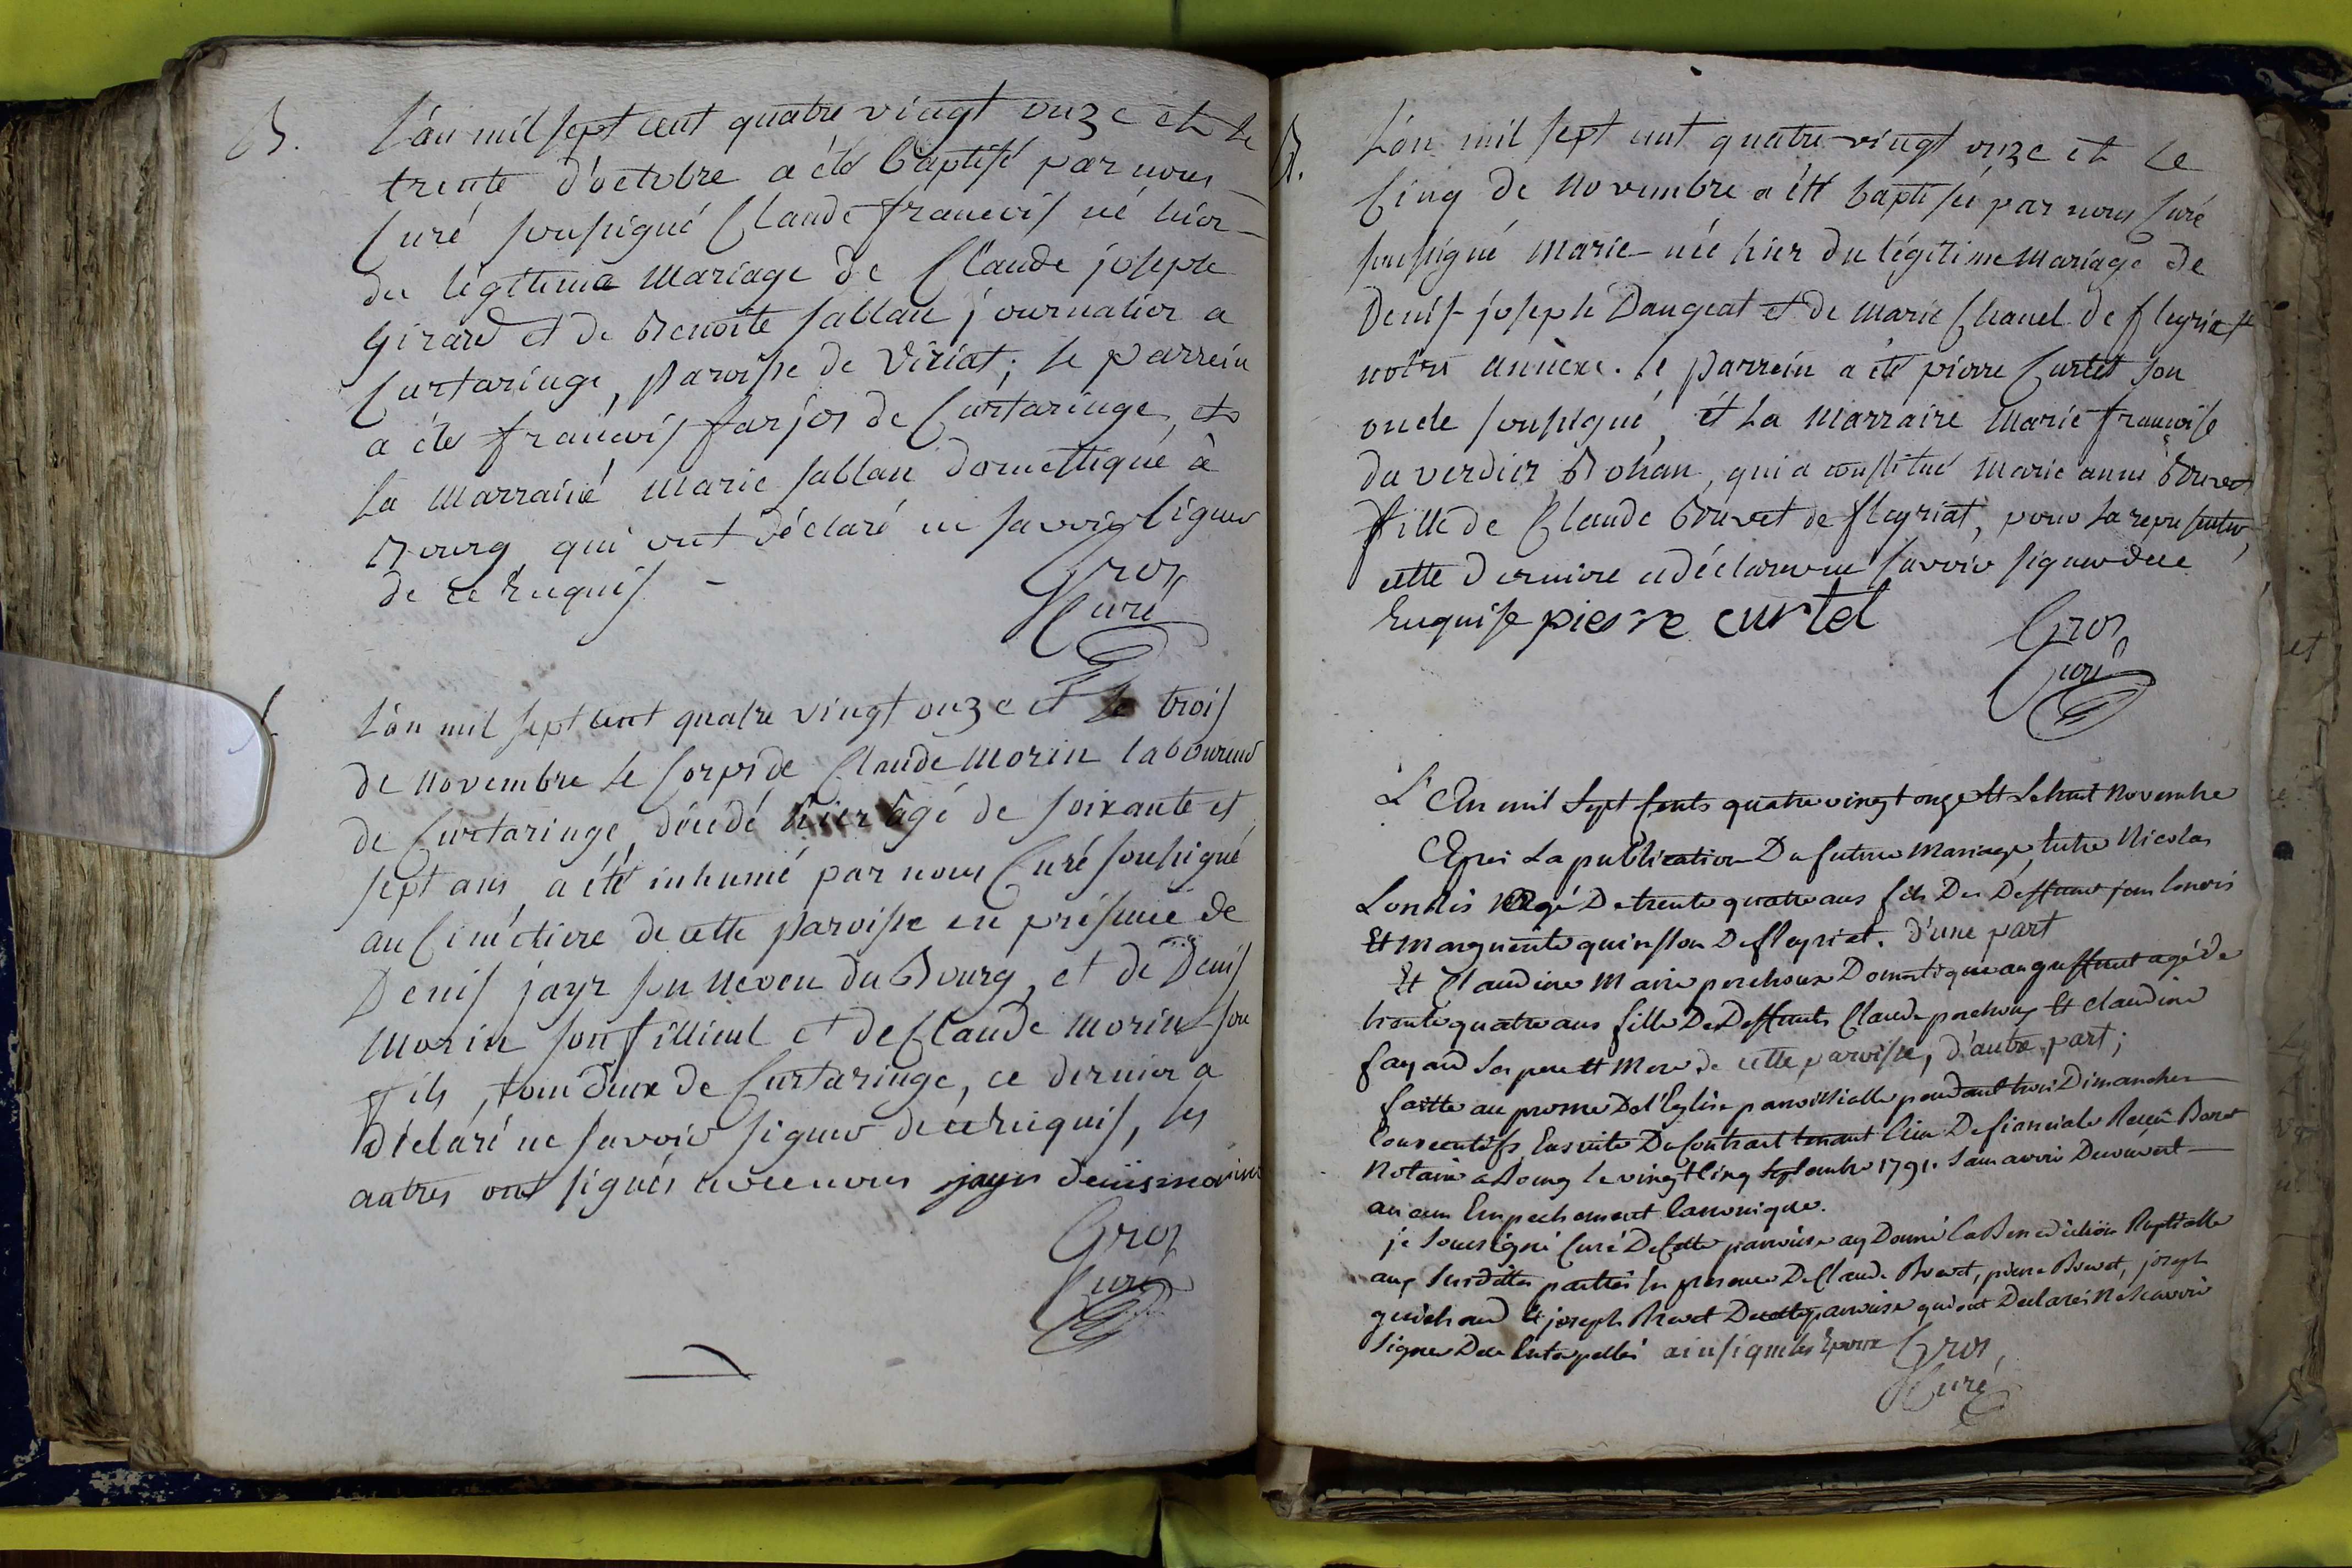 B.
L'an mil sept cent quatre vingt onze et le
trente d'octobre a été baptisé par nous
Curé soussigné Claude francois né hier
du légitime mariage de Claude joseph
Girard et de Benoite sablau journalier a
Curtaringe, paroisse de Viriat; le parrein
a été francois farjos de Curtaringe, et
la marraine marie sablau domestique à
Bourg qui ont déclaré ne savoir signer
de ce Enquis -
Gros
Curé
L'an mil sept cent quatre vingt onze et le trois
de novembre le corps de Claude morin laboureur
de Curtaringe, décédé hier agé de soixante et
sept ans, a été inhumé par nous Curé soussigné
au Cimétiere de cette paroisse en présence de
Denis jayr son neveu du Bourg, et de Denis
Morin son fillieul et de Claude Morin son
fils, tous deux de Curtaringe, ce dernier a
déclaré ne savoir signer de ce Enquis, les
autres ont signés avec nous jayr denis morin
Gros
Curé
B.
L'an mil sept cent quatre-vingt onze et le
Cinq de novembre a été baptisée par nous Curé
soussigné marie née hier du légitime mariage de
Denis-joseph Dangeat et de marie Chanel de fleyriat
notre annexe. le parrein a été pierre Curtet son
oncle soussigné, et la marraine marie francoise
du verdier Bohan, qui a constitué marie anne Bouvet
fille de Claude Bouvet de fleyriat, pour la representer,
cette derniere a déclaré ne savoir signer de ce
Enquise pierre curtet
Gros
Curé
L'An mil Sept Cents quatre vingt onze Et le huit Novembre
Aprés La publication Du futur Mariage, Entre Nicolas
Londis Agé De trente quatre ans fils Des Deffunts jean
Et marguerite De fleyriat. d'une part
Et Claudine Marie perchoux Domestique agé de
trente quatre ans fille Des Deffunts Claude perchoux Et Claudine
fayard Ses pere Et Mere de cette paroisse, d'autre part;
faitte au prone De l'Eglise paroissialle pendant trois Dimanches
Consecutifs, Ensuite Du Contract tenant lieu De fiancialle Receu
Notaire a Bourg le vingt Cinq Septembre 1791. Sans avoir Decouvert
aucun Empechement Canonique.
je Soussigné Curé De Cette paroisse ay Donné la Benediction Nuptialle
aux Susdittes parties En presence De Claude Buvet, pierre Buvet, joseph
guichard Et joseph Buvet De cette paroisse qui ont Declarés Ne Scavoir
Signer De ce Enterpellés ainsi que les Epoux
Gros,
Curé